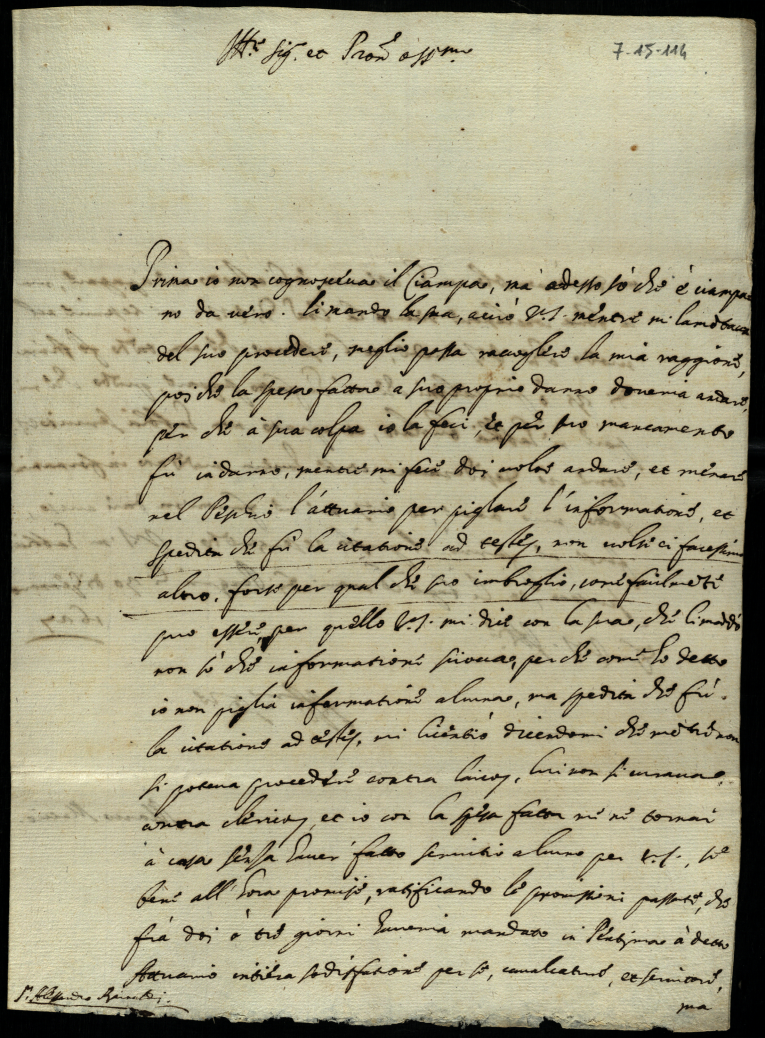 Ill.re Sig.r et Pron. oss.mo
7-15-114
Prima io non cognosceva il Ciampa, ma adesso sò che è ciampa
no da vero. li mando la sua, acciò V.S. mentre mi lamentava
del suo procedere, meglio possa raccogliere la mia raggione,
poiche la spesa fatta a suo proprio danno doveria andare,
per che à sua colpa io la feci, et per suo mancamento
fù indarno, mentre mi fece doi volte andare, et menare
nel Peschio l'attuario per pigliare l'informatione, et
spedita che fù la citatione ad testes, non volse ci facessimo
altro. forse per qual che suo imbroglio, come facilmente
può essere, per quello V.S. mi dice con la sua, che li mandò
non sò che informatione per che come ho detto
io non pigliai informatione alcuna, ma spedita che fù
la citatione ad testes, mi licentiò dicendomi che mentre non
si poteva procedere contra laicos, lui non si curava
contra clericos, et io con la spesa fatta me ne tornai
à casa senza haver fatto servitio alcuno per V.S., se
bene all'hora promise, ratificando le promissioni passate, che
frà doi ò tre giorni haveria mandato in Pentima à detto
Attuario intiera sodisfatione per se, cavalcature, et servitore,
ma
S.r Alessandro